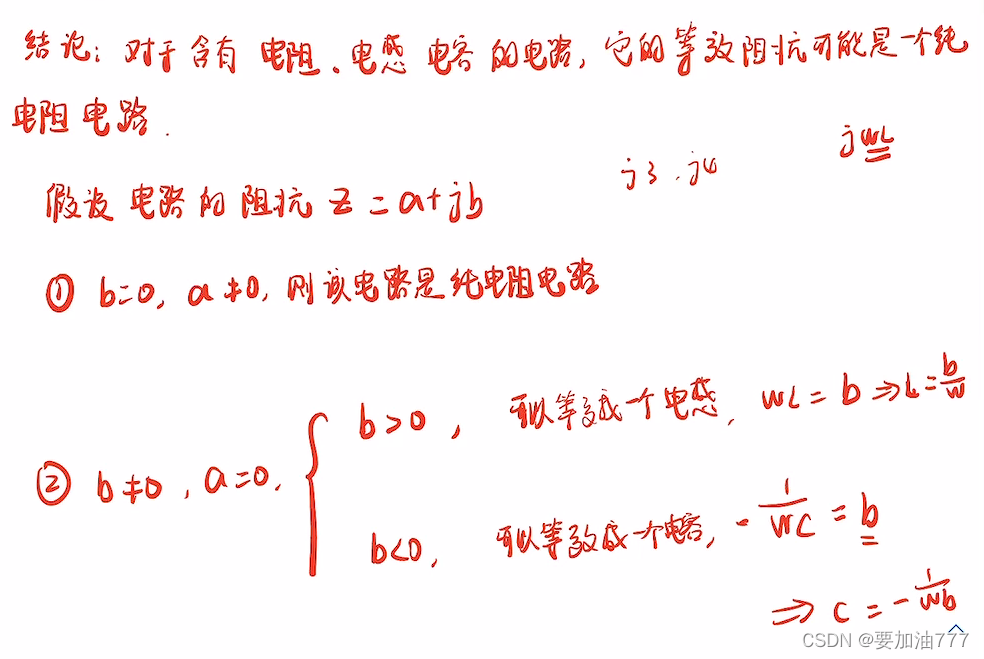 结论：对于含有 电阻、电感 电容 的电路，它的等效阻抗可能是一个纯
电阻电路.
j3 . j4
jwL
假设 电路的阻抗 Z = a+jb
① b=0, a≠0, 则该电路是纯电阻电路
b>0, 可以等效成一个电感, wL = b ⇒ L = b/w
② b≠0, a=0,
b<0, 可以等效成一个电容, -1/wC = b
⇒ C = -1/wb
CSDN @要加油777